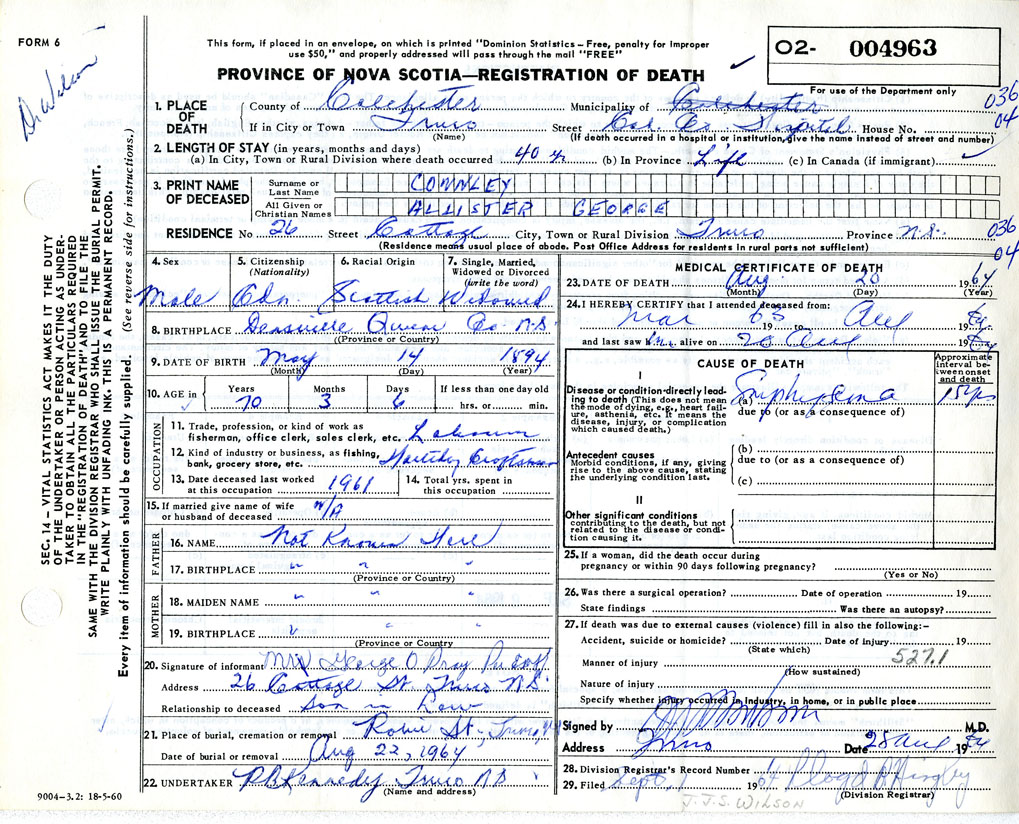 FORM 6
Dr Wilson
This form, if placed in an envelope, on which is printed "Dominion Statistics – Free, penalty for improper
use $50," and properly addressed will pass through the mail "FREE"
PROVINCE OF NOVA SCOTIA—REGISTRATION OF DEATH
02- 004963
For use of the Department only
036
04
1. PLACE OF DEATH
County of Colchester Municipality of Colchester
If in City or Town Truro Street Col. Co. Hospital House No.
(Name) (If death occurred in a hospital or institution, give its name instead of street and number)
2. LENGTH OF STAY (in years, months and days)
(a) In City, Town or Rural Division where death occurred 40 yr (b) In Province Life (c) In Canada (if immigrant)
3. PRINT NAME OF DECEASED
Surname or Last Name CONNLEY
All Given or Christian Names ALLISTER GEORGE
RESIDENCE No 26 Street Cottage City, Town or Rural Division Truro Province N.S.
(Residence means usual place of abode. Post Office Address for residents in rural parts not sufficient)
036
04
4. Sex Male
5. Citizenship (Nationality) Cdn
6. Racial Origin Scottish
7. Single, Married, Widowed or Divorced (write the word) Widowed
8. BIRTHPLACE Queen Co. N.S.
(Province or Country)
9. DATE OF BIRTH May 14 1894
(Month) (Day) (Year)
10. AGE in Years 70 Months 3 Days 6 If less than one day old hrs. or min.
OCCUPATION
11. Trade, profession, or kind of work as fisherman, office clerk, sales clerk, etc.
12. Kind of industry or business, as fishing, bank, grocery store, etc.
13. Date deceased last worked at this occupation 1961
14. Total yrs. spent in this occupation
15. If married give name of wife or husband of deceased N/A
FATHER
16. NAME Not Known Here
17. BIRTHPLACE " " "
(Province or Country)
MOTHER
18. MAIDEN NAME " " "
19. BIRTHPLACE " " "
(Province or Country)
20. Signature of informant George O
Address 26 Cottage St. Truro N.S.
Relationship to deceased Son in Law
21. Place of burial, cremation or removal Robie St., Truro, N.S.
Date of burial or removal Aug 22, 1964
22. UNDERTAKER Kennedy Truro N S
(Name and address)
9004-3.2: 18-5-60
SEC. 14 – VITAL STATISTICS ACT MAKES IT THE DUTY
OF THE UNDERTAKER OR PERSON ACTING AS UNDER-
TAKER TO OBTAIN ALL THE PARTICULARS REQUIRED
IN THE "REGISTRATION OF DEATH" AND TO FILE THE
SAME WITH THE DIVISION REGISTRAR WHO SHALL ISSUE THE BURIAL PERMIT.
WRITE PLAINLY WITH UNFADING INK. THIS IS A PERMANENT RECORD.
Every item of information should be carefully supplied. (See reverse side for instructions.)
MEDICAL CERTIFICATE OF DEATH
23. DATE OF DEATH Aug 20 1964
(Month) (Day) (Year)
24. I HEREBY CERTIFY that I attended deceased from:
Mar 63 19 to Aug 19 64
and last saw him alive on 20 Aug 19 64
CAUSE OF DEATH
Approximate interval between onset and death
I
Disease or condition directly leading to death (This does not mean the mode of dying, e.g., heart failure, asthenia, etc. It means the disease, injury, or complication which caused death.)
(a) Emphysema 15 yrs
due to (or as a consequence of)
Antecedent causes
Morbid conditions, if any, giving rise to the above cause, stating the underlying condition last.
(b)
due to (or as a consequence of)
(c)
II
Other significant conditions
contributing to the death, but not related to the disease or condition causing it.
25. If a woman, did the death occur during
pregnancy or within 90 days following pregnancy?
(Yes or No)
26. Was there a surgical operation? Date of operation 19
State findings Was there an autopsy?
27. If death was due to external causes (violence) fill in also the following:-
Accident, suicide or homicide? Date of injury 19
(State which) 527.1
Manner of injury
(How sustained)
Nature of injury
Specify whether injury occurred in Industry, in home, or in public place
Signed by M.D.
Address Truro Date 28 Aug 19 64
28. Division Registrar's Record Number
29. Filed Sept. 1 64 Lloyd
(Division Registrar)
J.J.S. WILSON